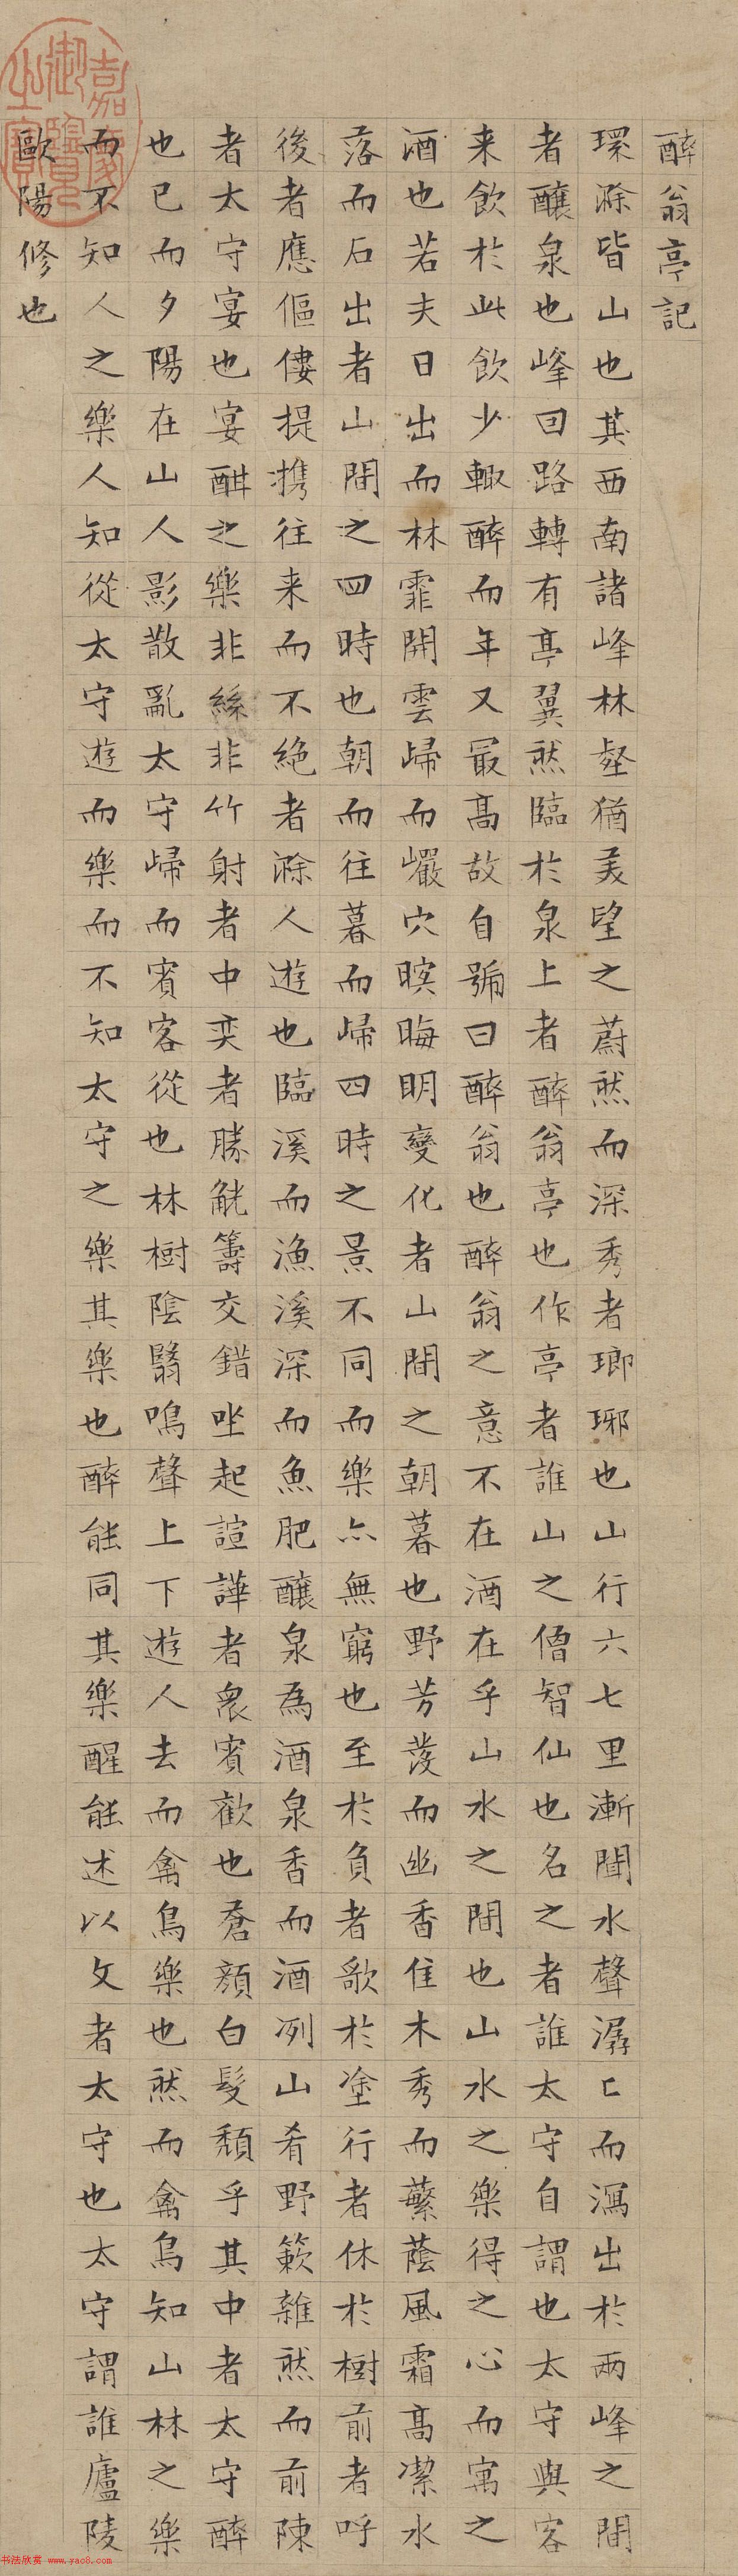 醉翁亭記
環滁皆山也其西南諸峰林壑猶美望之蔚然而深秀者瑯琊也山行六七里漸聞水聲潺〻而瀉出於兩峰之間
者釀泉也峰回路轉有亭翼然臨於泉上者醉翁亭也作亭者誰山之僧智仙也名之者誰太守自謂也太守與客
来飲於此飲少輙醉而年又最高故自號曰醉翁也醉翁之意不在酒在乎山水之間也山水之樂得之心而寓之
酒也若夫日出而林霏開雲歸而巖穴暝晦明變化者山間之朝暮也野芳發而幽香佳木秀而蘩蔭風霜高潔水
落而石出者山間之四時也朝而往暮而歸四時之景不同而樂亦無窮也至於負者歌於塗行者休於樹前者呼
後者應傴僂提携往来而不絶者滁人遊也臨溪而漁溪深而魚肥釀泉為酒泉香而酒冽山肴野簌雜然而前陳
者太守宴也宴酣之樂非絲非竹射者中奕者勝觥籌交錯坐起諠譁者衆賓歡也蒼顏白髮頹乎其中者太守醉
也已而夕陽在山人影散亂太守歸而賓客從也林樹陰翳鳴聲上下遊人去而禽鳥樂也然而禽鳥知山林之樂
而不知人之樂人知從太守遊而樂而不知太守之樂其樂也醉能同其樂醒能述以文者太守也太守謂誰廬陵
歐陽修也
嘉慶御覽之寶
书法欣赏 www.yac8.com